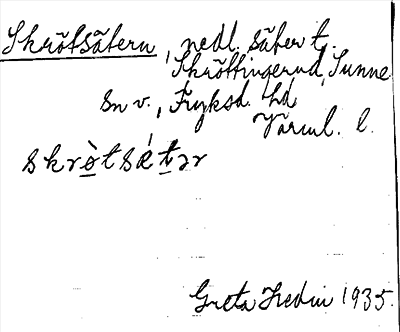 Skrötsätern, nedl. säter t.
Skröttingerud, Sunne
sn v., Fryksd. hd
Värml. l.
skrò̱tsǽt̠ər
Greta Hedin 1935.